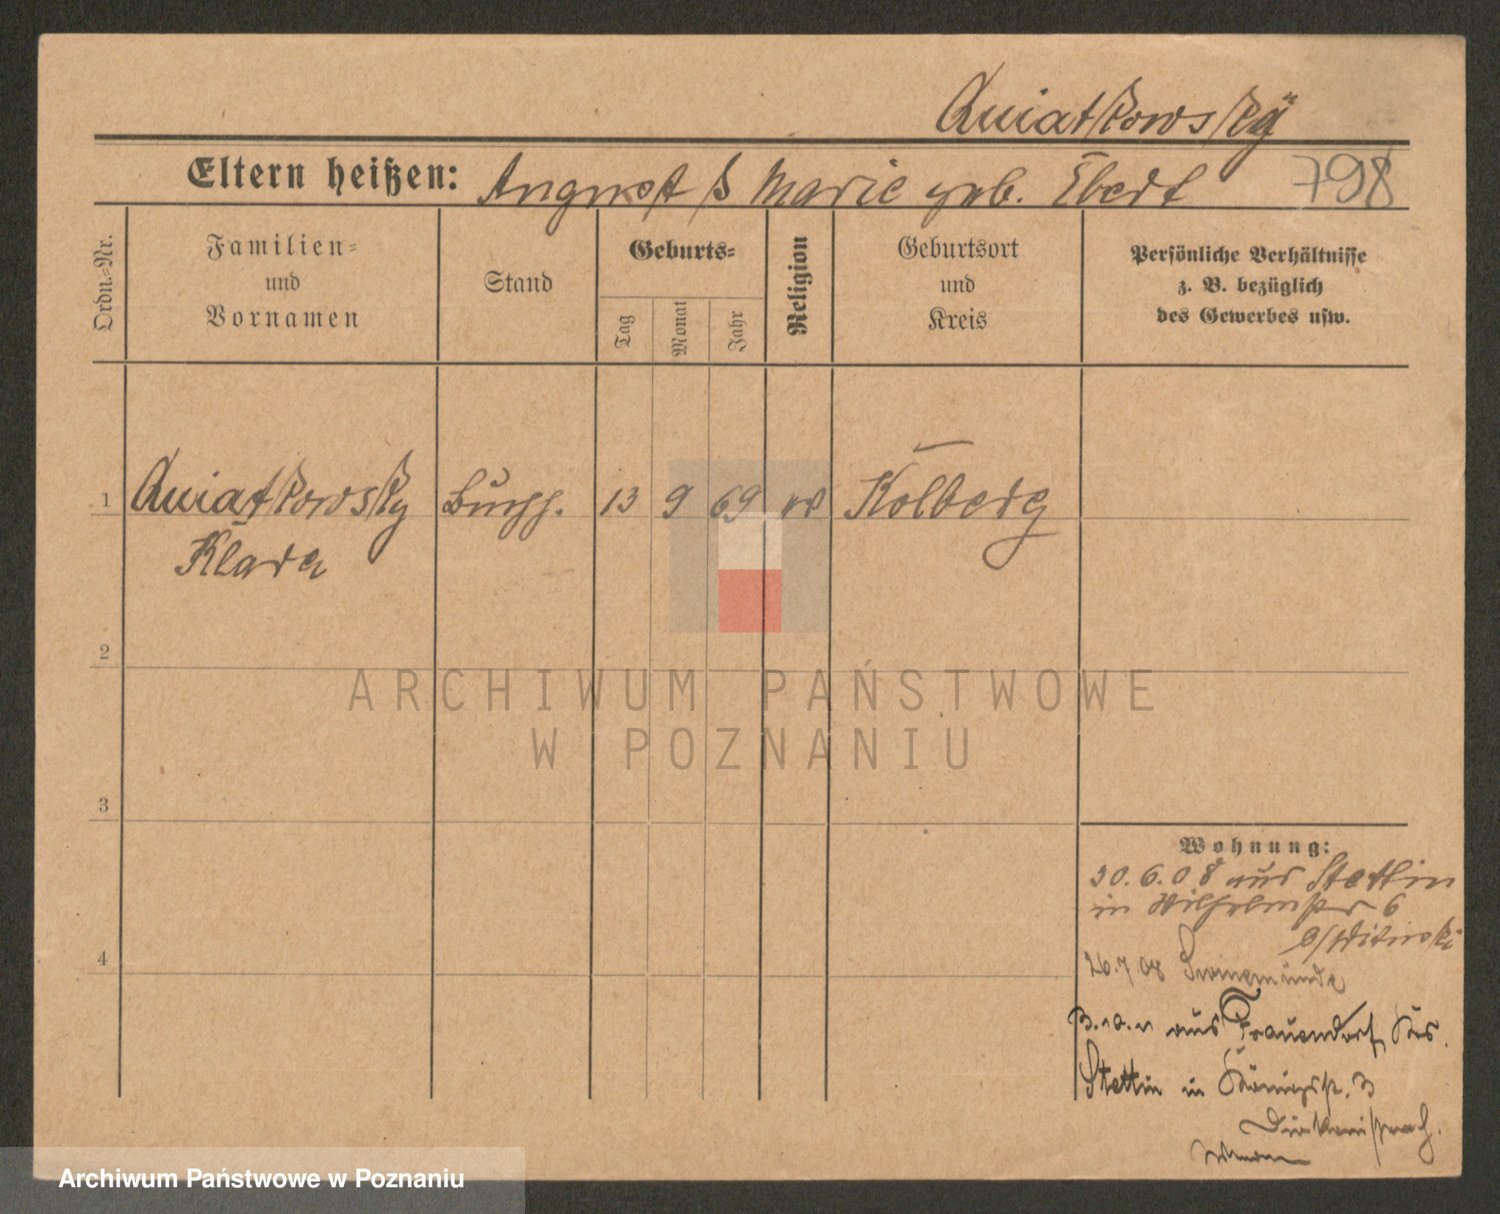 Quiatkowsky
Eltern heißen: August & Marie geb. Ebert 798
Ordn.-Nr.
Familien-
und
Vornamen
Stand
Geburts-
Tag
Monat
Jahr
Religion
Geburtsort
und
Kreis
Persönliche Verhältnisse
z. B. bezüglich
des Gewerbes usw.
1 Quiatkowsky 13 9 69 Kolberg
Klara
2
3
4
Wohnung:
30.6.08 aus Stettin
in Wilhelmstr 6
26.7.08 Swinemünde
aus Frauendorf Krs.
Stettin in Königstr. 3
ARCHIWUM PAŃSTWOWE
W POZNANIU
Archiwum Państwowe w Poznaniu